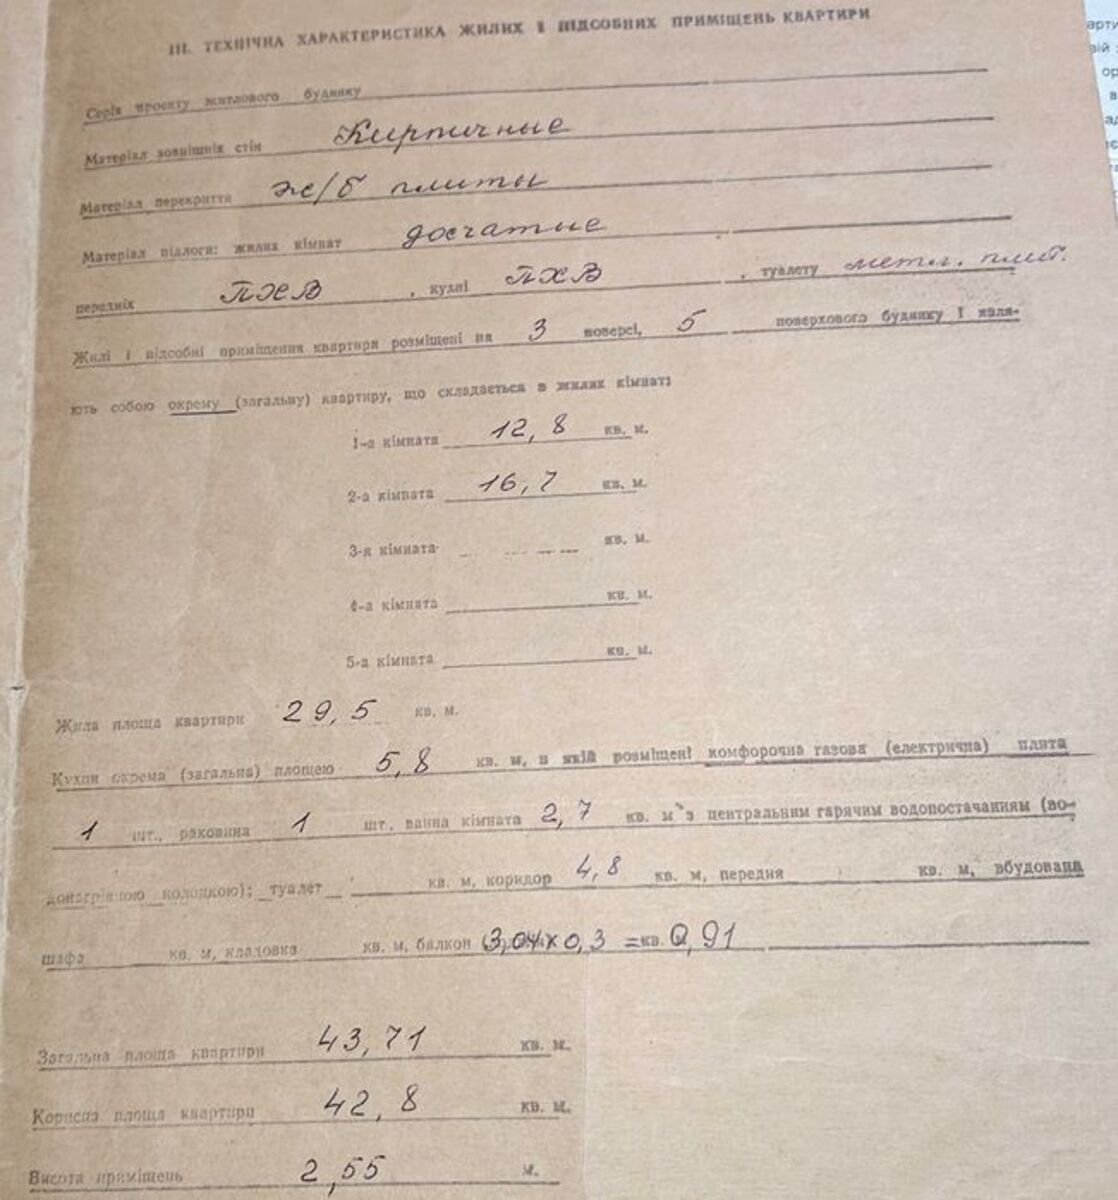 III. ТЕХНІЧНА ХАРАКТЕРИСТИКА ЖИЛИХ І ПІДСОБНИХ ПРИМІЩЕНЬ КВАРТИРИ
Серія проекту житлового будинку
Матеріал зовнішніх стін Кирпичные
Матеріал перекриття ж/б плиты
Матеріал підлоги: жилих кімнат досчатые
передніх ПХВ , кухні ПХВ , туалету метл. плит.
Жилі і підсобні приміщення квартири розміщені на 3 поверсі, 5 поверхового будинку і явля-
ють собою окрему (загальну) квартиру, що складається з жилих кімнат:
1-а кімната 12,8 кв. м.
2-а кімната 16,7 кв. м.
3-я кімната кв. м.
4-а кімната кв. м.
5-а кімната кв. м.
Жила площа квартири 29,5 кв. м.
Кухня окрема (загальна) площею 5,8 кв. м, в якій розміщені комфорочна газова (електрична) плита
1 шт., раковина 1 шт, ванна кімната 2,7 кв. м з центральним гарячим водопостачанням (во-
донагрівною колонкою); туалет кв. м, коридор 4,8 кв. м, передня кв. м, вбудована
шафа кв. м, кладовка кв. м, балкон 3,04 х 0,3 = кв. 0,91
Загальна площа квартири 43,71 кв. м.
Корисна площа квартири 42,8 кв. м.
Висота приміщень 2,55 м.